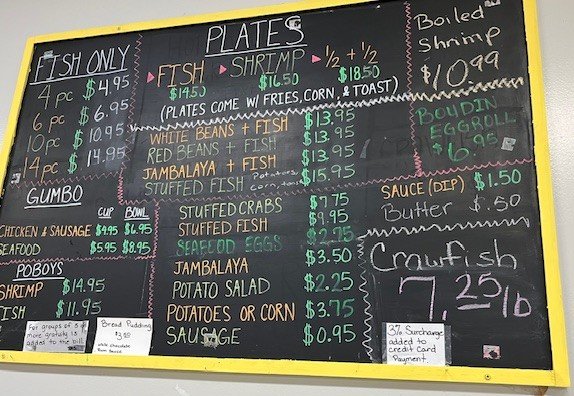 FISH ONLY
4 pc $4.95
6 pc $6.95
10 pc $10.95
14 pc $14.95
PLATES
FISH SHRIMP 1/2 + 1/2
$14.50 $16.50 $18.50
(PLATES COME W/ FRIES, CORN, & TOAST)
WHITE BEANS + FISH $13.95
RED BEANS + FISH $13.95
JAMBALAYA + FISH $13.95
STUFFED FISH Potatoes $15.95
corn, toast
Boiled
Shrimp
$10.99
BOUDIN
EGGROLL
$6.95
GUMBO
CUP BOWL
CHICKEN & SAUSAGE $4.95 $6.95
SEAFOOD $5.95 $8.95
POBOYS
SHRIMP $14.95
FISH $11.95
STUFFED CRABS $7.75
STUFFED FISH $9.95
SEAFOOD EGGS $2.75
JAMBALAYA $3.50
POTATO SALAD $2.25
POTATOES OR CORN $3.75
SAUSAGE $0.95
SAUCE (DIP) $1.50
Butter $.50
Crawfish
7.25/lb
For groups of 5 or
more gratuity is
added to the bill.
Bread Pudding
white chocolate
Rum sauce
3% Surcharge
added to
credit Card
Payment